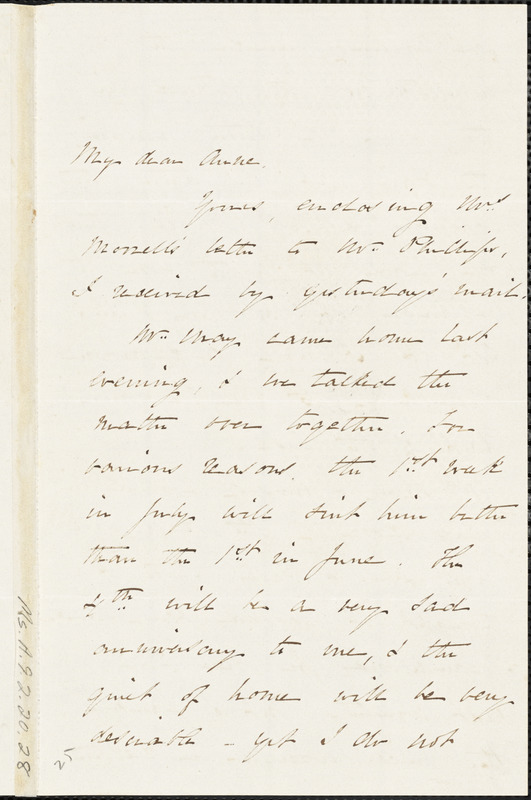 My dear Anne.
Yours, enclosing Mrs
Morrell's letter to Mr. Phillips,
I received by yesterday's mail.
Mr. May came home last
evening, & we talked the
matter over together. For
various reasons. the 1st. week
in July will suit him better
than the 1st in June. The
4th will be a very sad
anniversary to me, & the
quiet of home will be very
desirable - yet I do not
25
Ms. A.9.2.30.28